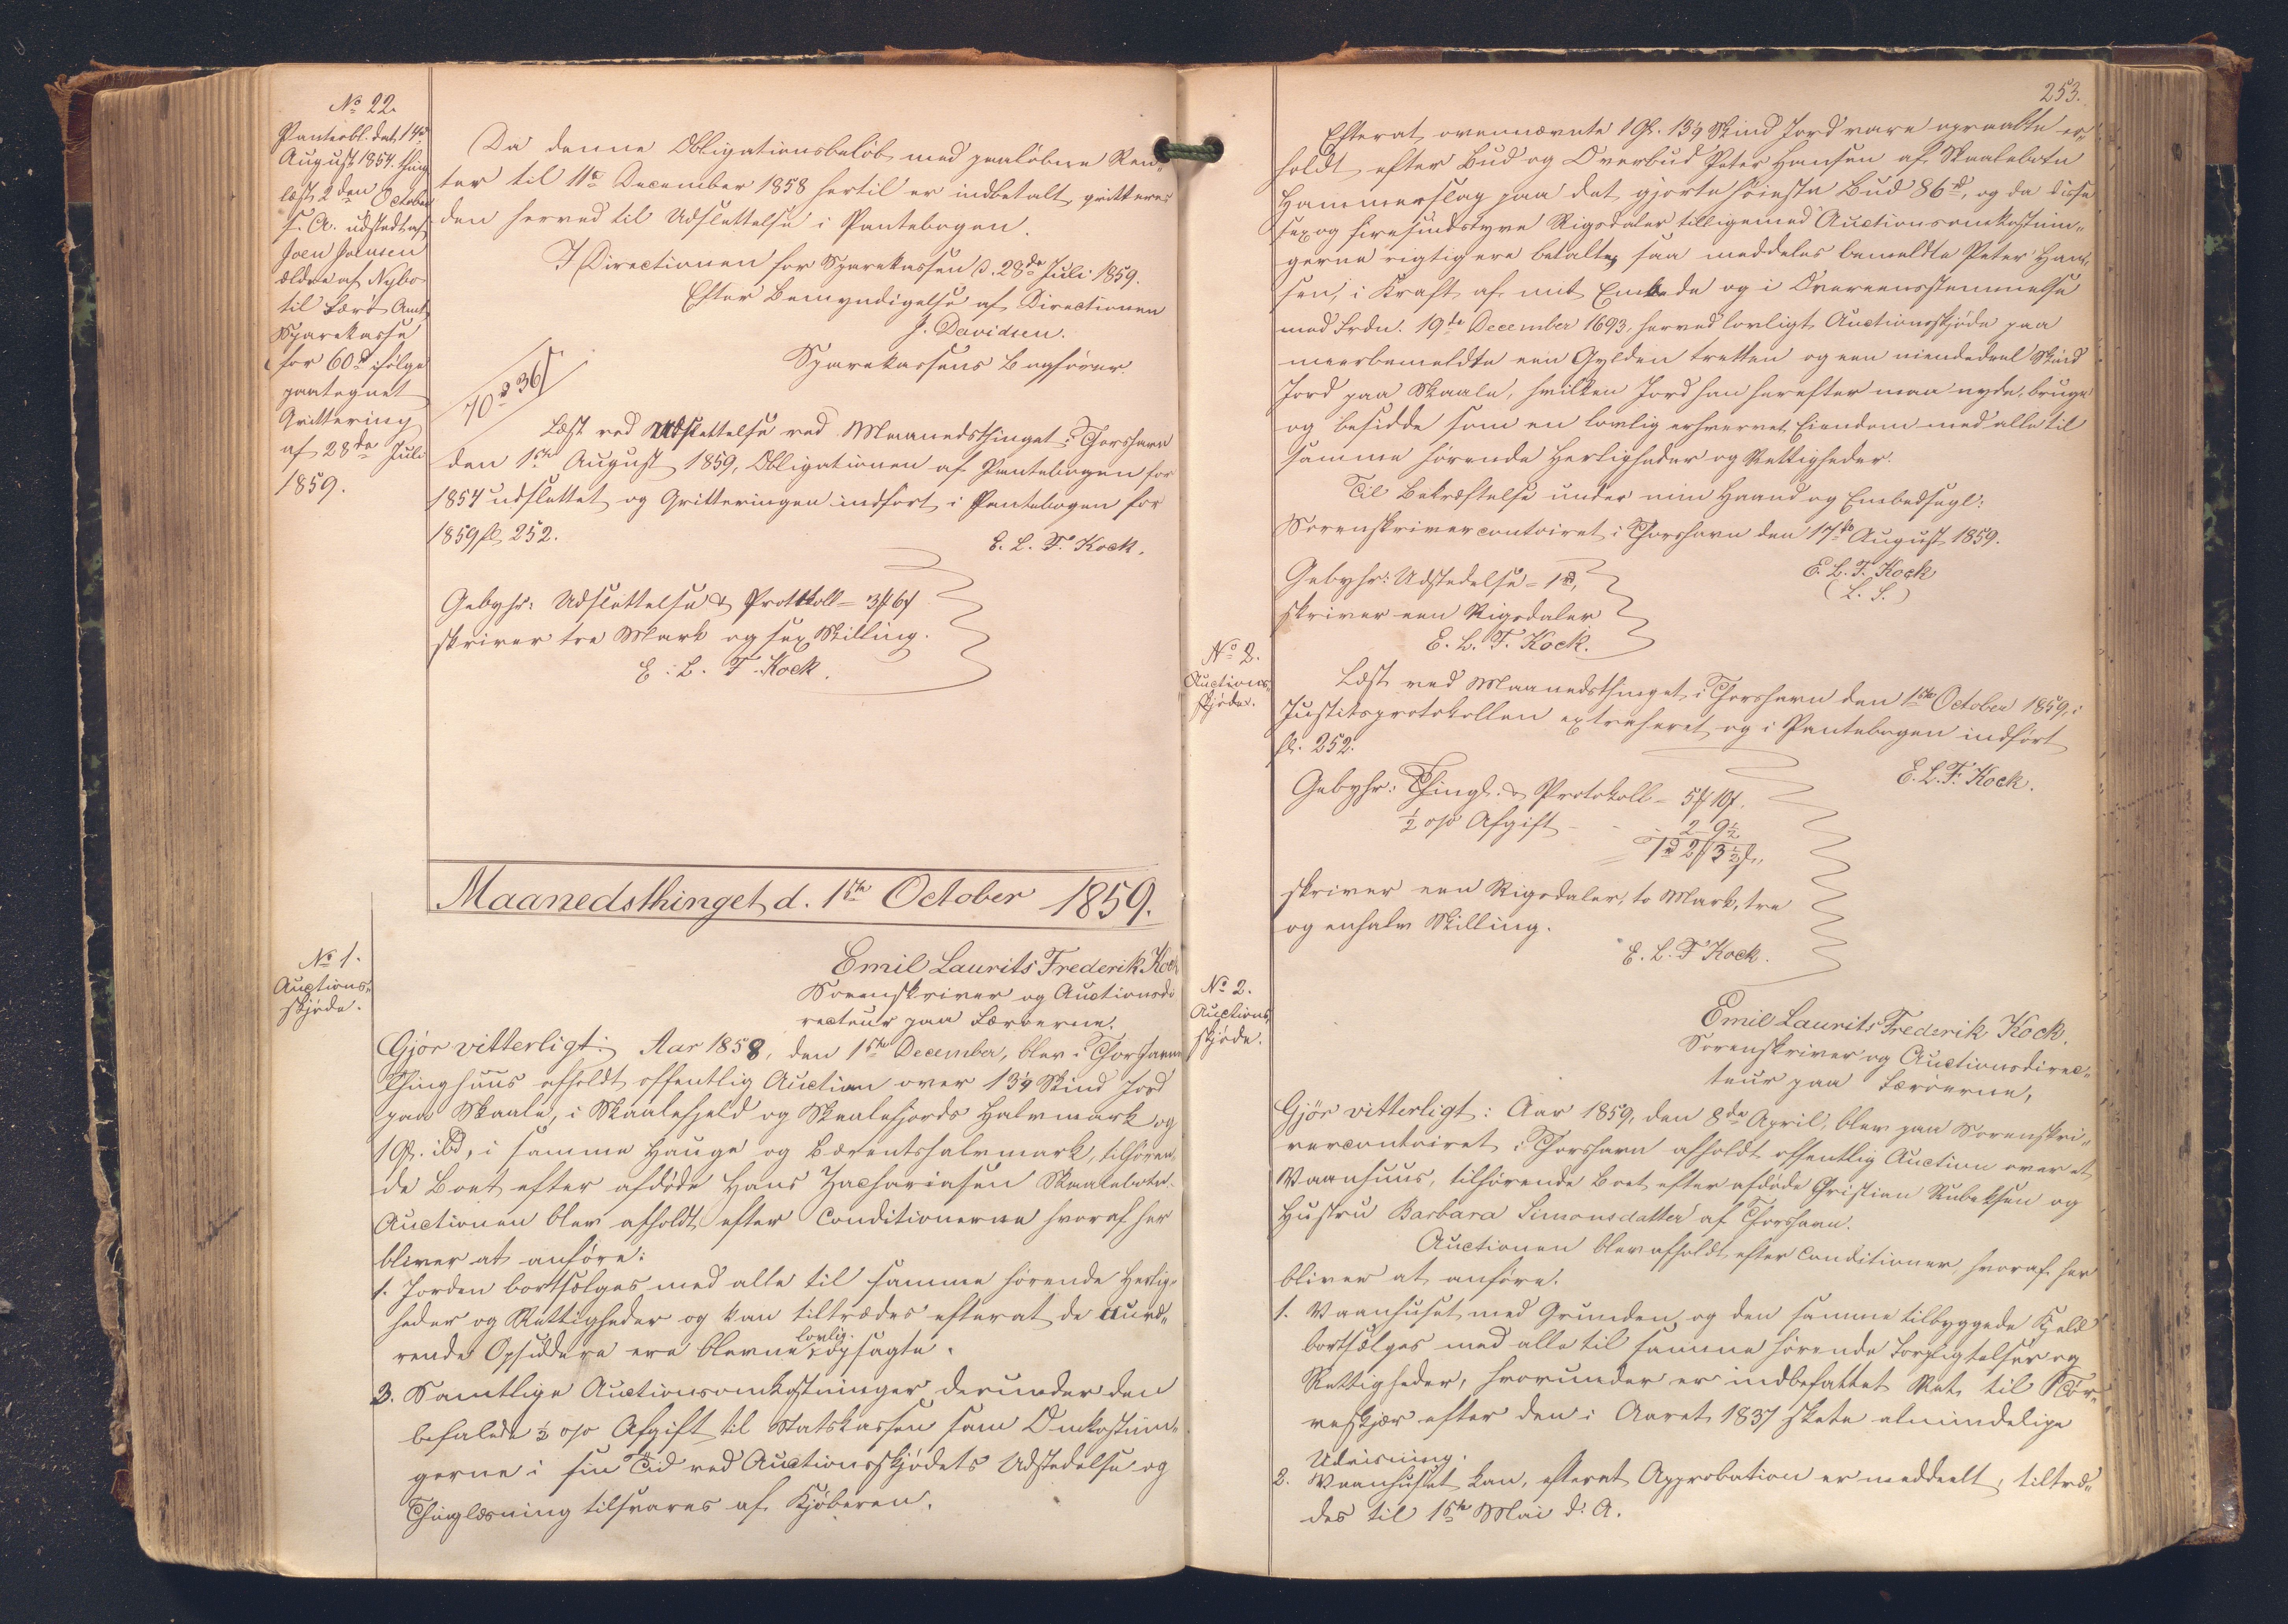 No 22.
Panteobl. dat. 14de
August 1854. thing
læst 2den October
s. A. udstedt af
Joen Joensen
ældre af Nybo
til Færø Amts
Sparekasse
for 60rd ifølge
paategnet
Qvittering
af 28de Juli
1859.
Da denne Obligationsbeløb med paaløbne Ren-
ter til 11te December 1858 hertil er indbetalt qvitteres
den herved til Udslettelse i Pantebogen.
I Directionen for Sparekassen d. 28de Juli 1859.
Efter Bemyndigelse af Directionen
J. Davidsen.
Sparekassens Bogfører.
70rd 36s
Læst ved Udslettelse ved Maanedsthinget i Thorshavn
den 1ste August 1859, Obligationen af Pantebogen for
1854 udslettet og Qvitteringen indført i Pantebogen for
1859 fl. 252.
E. L. F. Kock.
Gebyhr: Udslettelse & Protokoll = 3 6s
skriver tre Mark og sex Skilling.
E. L. F. Kock.
Maanedsthinget d. 1ste October 1859.
No 1.
Auctions-
skjøde.
Emil Laurits Frederik Kock
Sorenskriver og Auctionsdi
recteur paa Færøerne.
Gjør vitterligt: Aar 1858, den 1ste December, blev i Thorshavns
Thinghuus afholdt offentlig Auction over 13 1/9 Skind Jord
paa Skaale, i Skaalefjeld og Skaalefjords Halvmark og
1 Gl. ibd, i samme Hauge og Børentshalvmark, tilhøren-
de Boet efter afdøde Hans Zachariasen Skaalebotn.
Auctionen blev afholdt efter Conditionerne hvoraf her
bliver at anføre:
1. Jorden bortsælges med alle til samme hørende Herlig-
heder og Rettigheder og kan tiltrædes efterat de nuvæ-
rende Opsiddere ere blevne lovlig opsagte.
3. Samtlige Auctionsomkostninger derunder den
befalede ½ o/o Afgift til Statskassen samt Omkostnin-
gerne i sin Tid ved Auctionsskjødets Udstedelse og
Thinglæsning tilsvares af Kjøberen.
253.
Efterat ovennævnte 1 Gl. 13 1/9 Skind Jord vare opraabte er-
holdt efter Bud og Overbud Peter Hansen af Skaalebotn
Hammerslag paa det gjorte høieste Bud 86rd, og da disse
sex og firesindstyve Rigsdaler tilligemed Auctionsomkostnin-
gerne rigtig ere betalte, saa meddeles bemeldte Peter Han-
sen, i Kraft af mit Embede og i Overeensstemmelse
med Frdn. 19de December 1693, herved lovligt Auctionsskjøde paa
meerbemeldte een Gylden tretten og een niendedeel Skind
Jord paa Skaale, hvilken Jord han herefter maa nyde, bruge
og besidde som en lovlig erhvervet Eiendom med alle til
samme hørende Herligheder og Rettigheder.
Til Bekræftelse under min Haand og Embedsegl:
Sorenskrivercontoiret i Thorshavn den 17de August 1859.
E. L. F. Kock
(L. S.)
Gebyhr: Udstedelse = 1rd,
skriver een Rigsdaler
E. L. F. Kock.
No 2.
Auctions-
skjøde.
Læst ved Maanedsthinget i Thorshavn den 1ste October 1859, i
Justitsprotokollen extraheret og i Pantebogen indført
fl. 252.
E. L. F. Kock.
Gebyhr: Thingl. & Protokoll = 5 10s.
½ o/o Afgift - - 2 9½
1rd 2 3½s.
skriver een Rigsdaler, to Mark, tre
og en halv Skilling.
E. L. F Kock.
No 2.
Auctions
skjøde.
Emil Laurits Frederik Kock.
Sorenskriver og Auctionsdirec-
teur paa Færøerne,
Gjør vitterligt: Aar 1859, den 8de April, blev paa Sorenskri-
vercontoiret i Thorshavn afholdt offentlig Auction over et
Vaanhuus, tilhørende Boet efter afdøde Christian Rubeksen og
Hustru Barbara Simonsdatter af Thorshavn.
Auctionen blev afholdt efter Conditioner, hvoraf her
bliver at anføre.
1. Vaanhuset med Grunden og den samme tilbyggede Kjeld
bortsælges med alle til samme hørende Forpligtelser og
Rettigheder, hvorunder er indbefattet Ret til Tør-
veskjær efter den i Aaret 1837 skete almindelige
Udviisning.
2. Vaanhuset kan, efterat Approbation er meddeelt, tiltræ-
des til 15de Mai d: A.